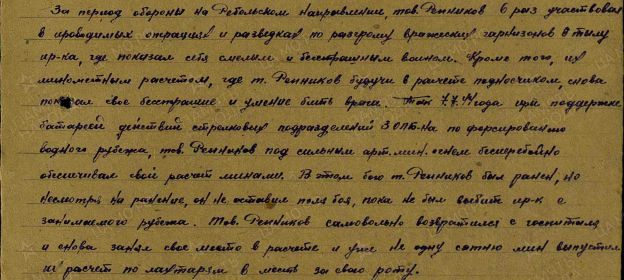 За период обороны на Ребольском направлении, тов. Репников 6 раз участвовал
в проводимых операциях и разведках по разгрому вражеских гарнизонов в тылу
пр-ка, где показал себя смелым и бесстрашным воином. Кроме того, их
минометным расчетом, где т. Репников будучи в расчете подносчиком, снова
показал свое бесстрашие и умение бить врага. Так 7.7.44 года при поддержке
батареей действий стрелковых подразделений 3 ОЛБ-на по форсированию
водного рубежа, тов. Репников под сильным арт. мин. огнем бесперебойно
обеспечивал свой расчет минами. В этом бою т. Репников был ранен, но
несмотря на ранение, он не оставил поля боя, пока не был выбит пр-к с
занимаемого рубежа. Тов. Репников самовольно возвратился с госпиталя
и снова занял свое место в расчете и уже не одну сотню мин выпустил
их расчет по лахтарям в месть за свою роту.